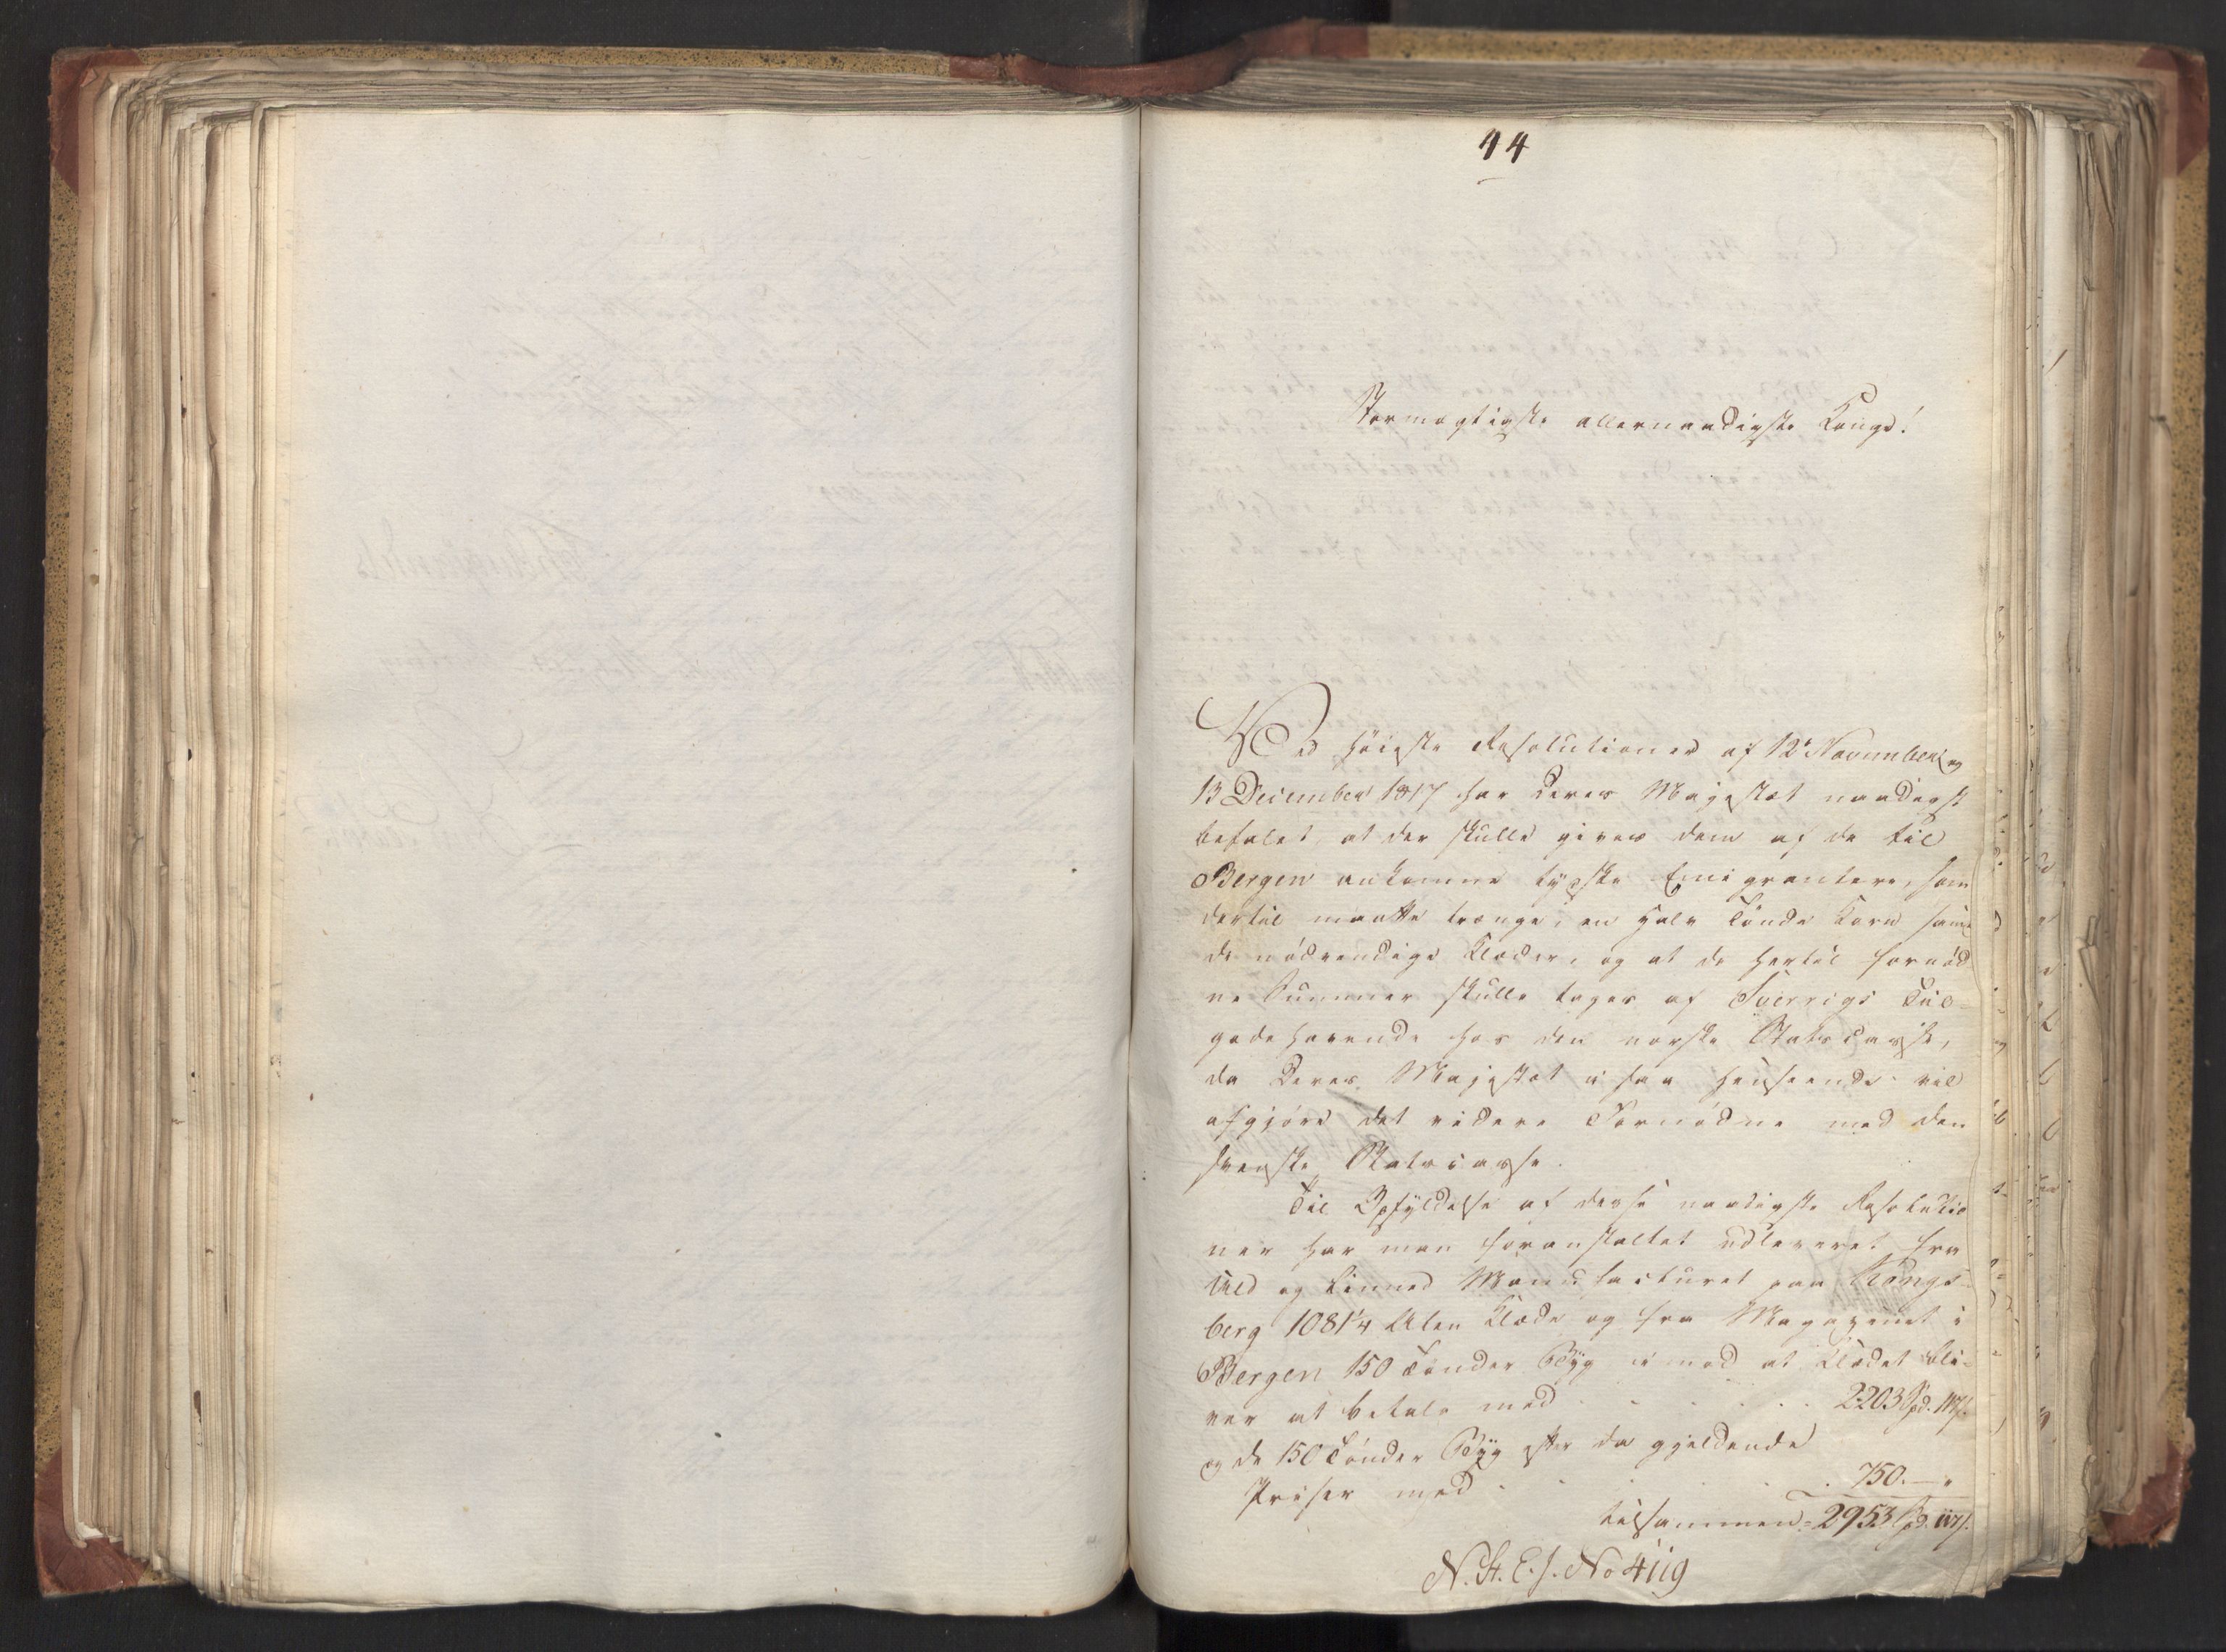 14
Stormægtigste allernaadigste Konge!
Ved høieste Resolutioner af 12te November og
13 December 1817 har Deres Majestæt naadigst
befalet, at der skulle gives dem af de til
Bergen ankomne tydske Emigrantere, som
dertil maatte trænge, en halv Tønde Korn samt
de nødvendige Klæder, og at de hertil fornød
ne Summer skulle tages af Sverrigs Til-
godehavende hos den norske Statscasse,
da Deres Majestæt i saa Henseende vil
afgjøre det videre Fornødne med den
svenske Statscasse.
Til Opfyldelse af disse naadigste Resolutio
ner har man foranstaltet udleveret fra
Uld og Linned Manufacturet paa Kongs-
berg 1081 1/4 Alen Klæde og fra Magazinet i
Bergen 150 Tønder Byg imod at Klædet bli-
ver at betale med . . . . . . 2203 Spd. 117 s.
og de 150 Tønder Byg efter da gjeldende
Priser med . . . . 750. — "
tilsammen = 2953 Spd. 117 s.
N. St. E. J. No 4119